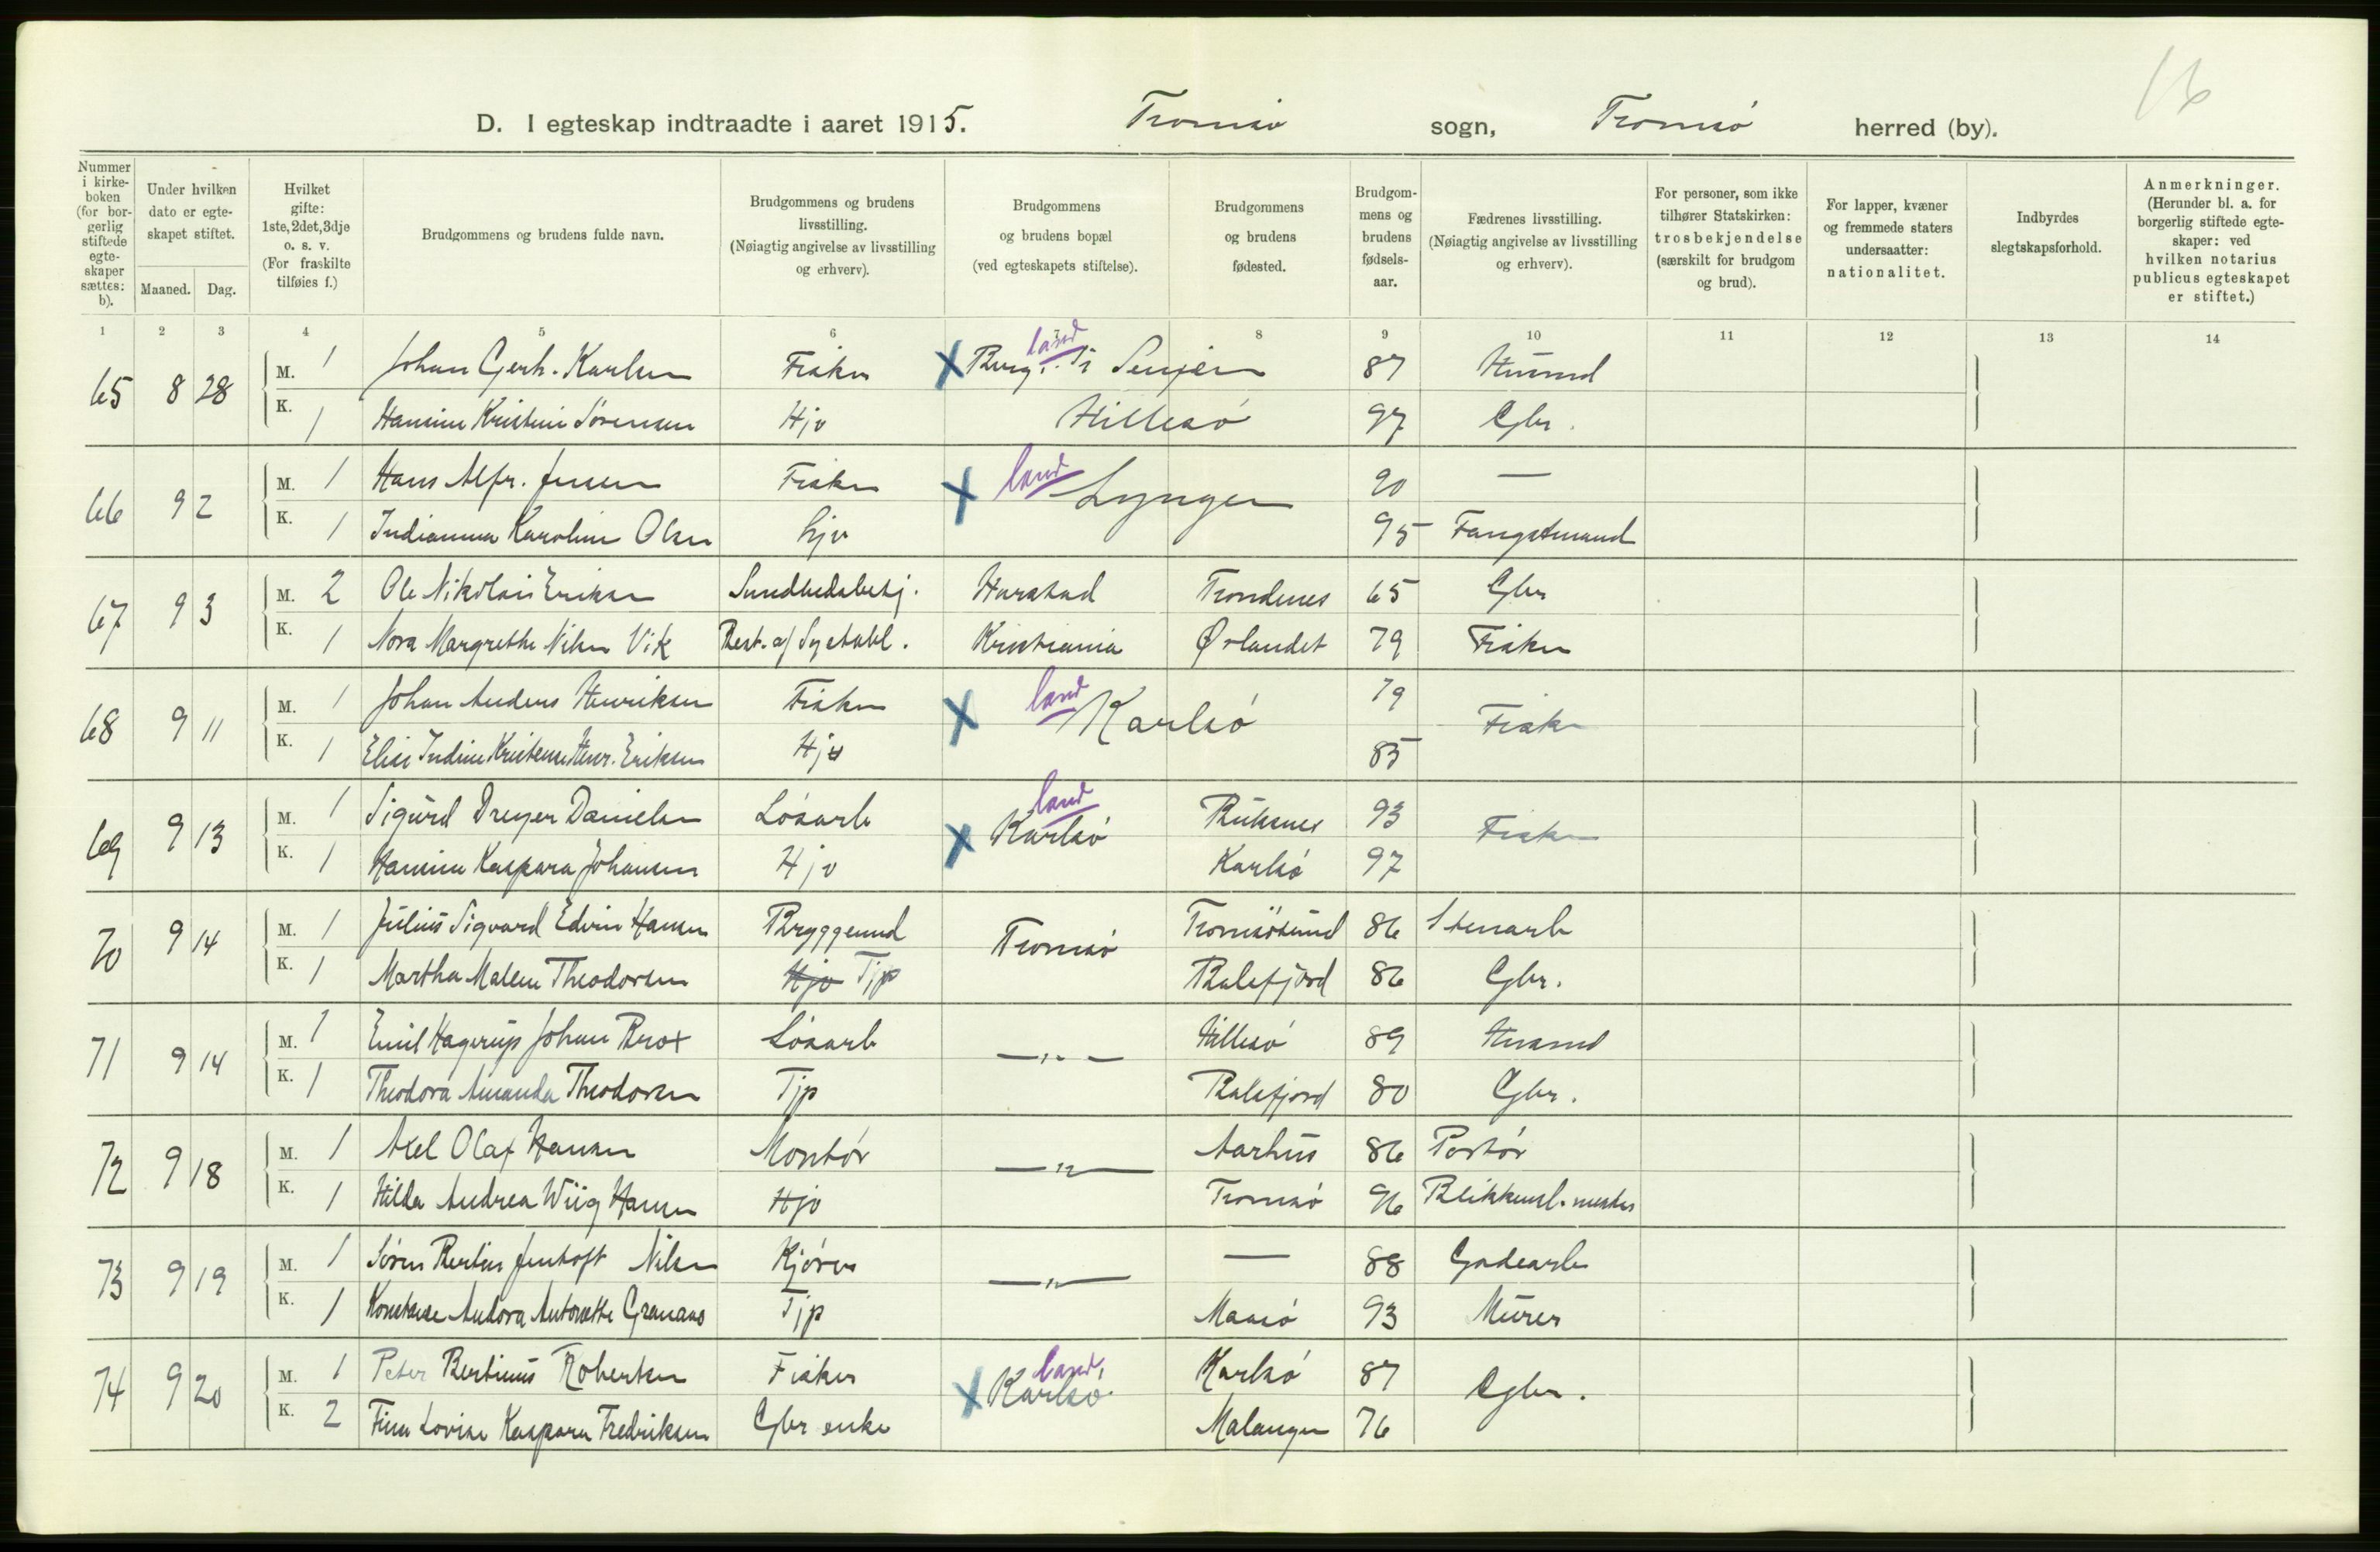 16
D. I egteskap indtraadte i aaret 1915. Tromsø sogn, Tromsø herred (by).
Nummer i kirke-boken (for bor-gerlig stiftede egte-skaper sættes: b).
Under hvilken dato er egte-skapet stiftet.
Maaned. Dag.
Hvilket gifte: 1ste, 2det, 3dje o. s. v. (For fraskilte tilføies f.)
Brudgommens og brudens fulde navn.
Brudgommens og brudens livsstilling. (Nøiagtig angivelse av livsstilling og erhverv).
Brudgommens og brudens bopæl (ved egteskapets stiftelse).
Brudgommens og brudens fødested.
Brudgom-mens og brudens fødsels-aar.
Fædrenes livsstilling. (Nøiagtig angivelse av livsstilling og erhverv).
For personer, som ikke tilhører Statskirken: trosbekjendelse (særskilt for brudgom og brud).
For lapper, kvæner og fremmede staters undersaatter: nationalitet.
Indbyrdes slegtskapsforhold.
Anmerkninger. (Herunder bl. a. for borgerlig stiftede egte-skaper: ved hvilken notarius publicus egteskapet er stiftet.)
1 2 3 4 5 6 7 8 9 10 11 12 13 14
65 8 28 M. 1 Johan Gerh. Karlsen Fisker X Berg i Senjen land 87 Husmd
K. 1 Hansine Kristine Sørensen Hjv Hillesø 97 Gbr.
66 9 2 M. 1 Hans Alfr. Jensen Fisker X land Lyngen 90 —
K. 1 Indianna Karoline Olsen hjv 95 Fangstmand
67 9 3 M. 2 Ole Nikolai Eriksen Sundhedsbetj. Harstad Trondenes 65 Gbr
K. 1 Nora Margrethe Nilsen Vik Best. af Systabl. Kristiania Ørlandet 79 Fisker
68 9 11 M. 1 Johan Anders Henriksen Fisker X land Karlsø 79 Fisker
K. 1 Elise Indine Kristense Henr. Eriksen Hjv 85
69 9 13 M. 1 Sigurd Dreyer Danielsen Løsarb X land Karlsø Buksnes 93 Fisker
K. 1 Hansine Kaspara Johansen Hjv Karlsø 97
70 9 14 M. 1 Julius Sigvard Edvin Hansen Bryggemd Tromsø Tromsøsund 86 Stenarb
K. 1 Martha Malene Theodorsen Hjv Tjp Balsfjord 86 Gbr.
71 9 14 M. 1 Emil Hagerup Johan Brox Løsarb —"— Hillesø 89 Husmd
K. 1 Theodora Amanda Theodorsen Tjp Balsfjord 80 Gbr.
72 9 18 M. 1 Axel Olaf Hansen Montør —"— Aarhus 86 Portør
K. 1 Hilda Andrea Wiig Hansen Hjv Tromsø 96 Blikkensl. mester
73 9 19 M. 1 Søren Bertin Jentoft Nilsen Kjører —"— — 88 Gadearb
K. 1 Konstanse Andora Antonette Grananæs Tjp Maasø 93 Murer
74 9 20 M. 1 Peter Bertinus Robertsen Fisker X land, Karlsø. Karlsø 87 Gbr.
K. 2 Fina Lovise Kaspara Fredriksen Gbr enke Malangen 76